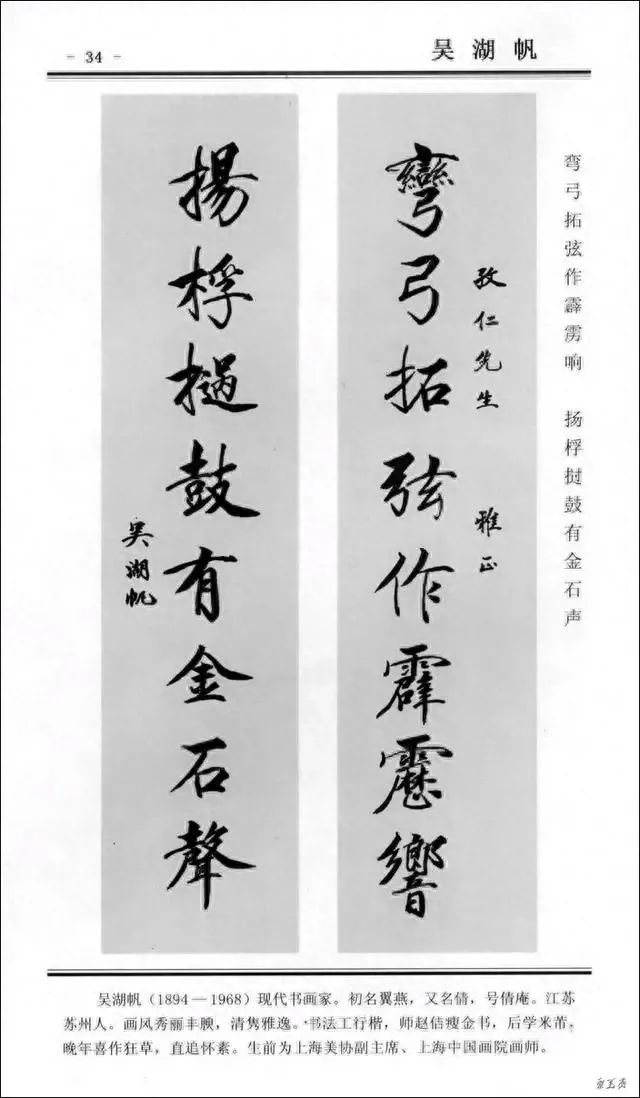 - 34 -
吴湖帆
弯弓拓弦作霹雳响 扬桴挝鼓有金石声
孜仁先生 雅正
彎弓拓弦作霹靂響
揚桴撾鼓有金石聲
吴湖帆
吴湖帆（1894—1968）现代书画家。初名翼燕，又名倩，号倩庵。江苏
苏州人。画风秀丽丰腴，清隽雅逸。书法工行楷，师赵佶瘦金书，后学米芾，
晚年喜作狂草，直追怀素。生前为上海美协副主席、上海中国画院画师。